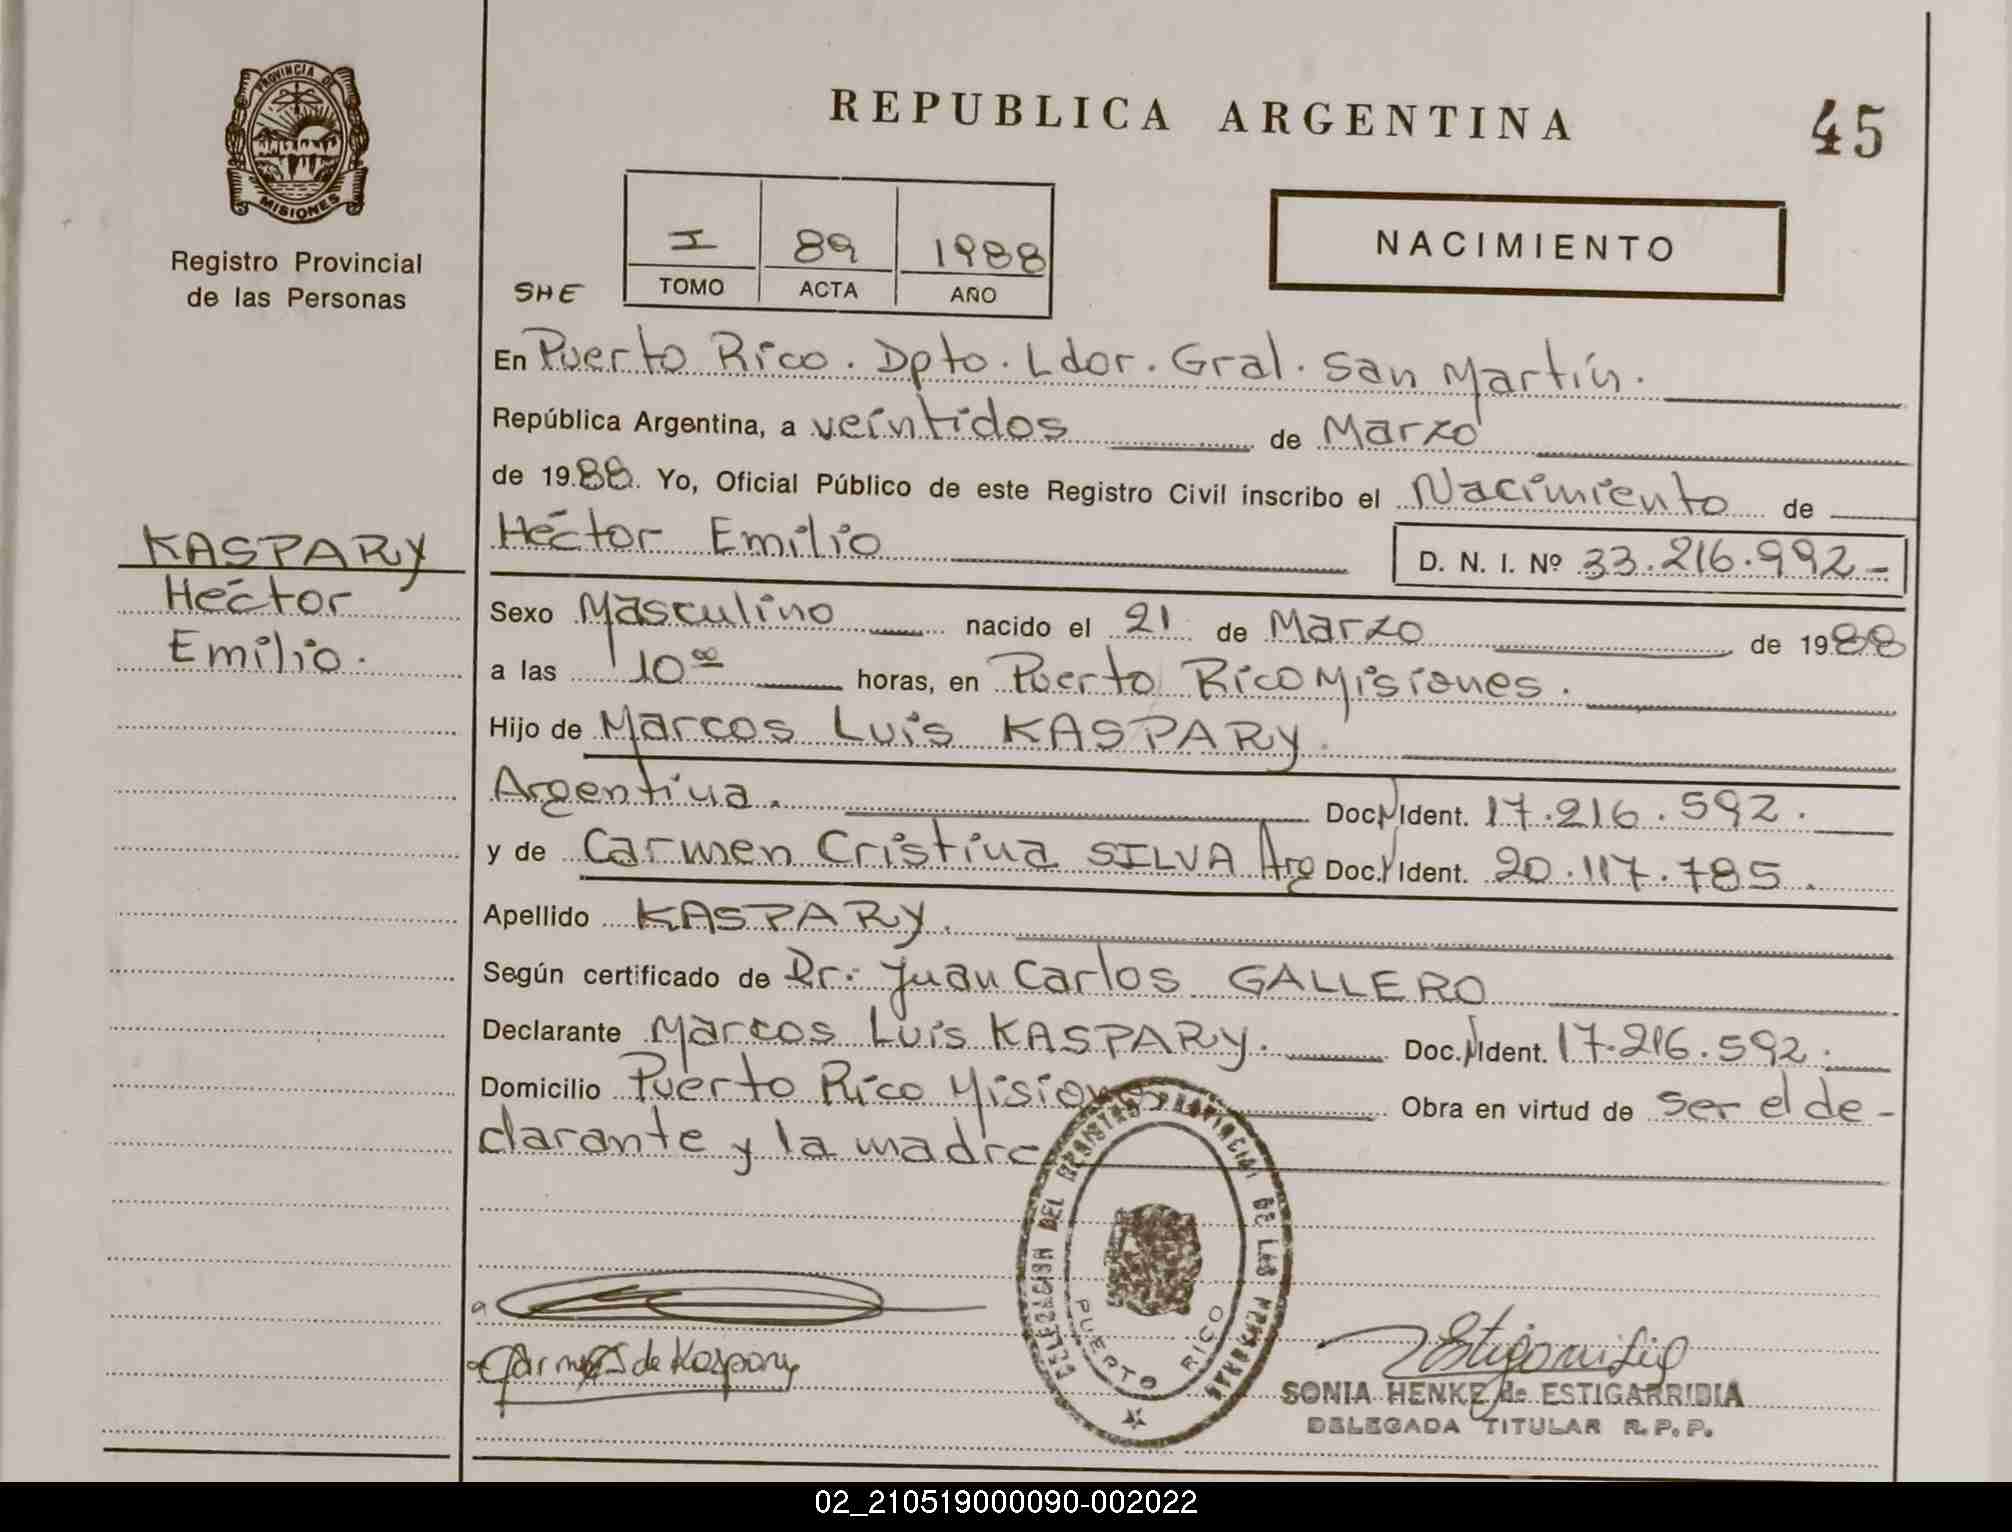 PROVINCIA DE
MISIONES
Registro Provincial
de las Personas
KASPARY
Héctor
Emilio.
REPUBLICA ARGENTINA
45
I 89 1988
TOMO ACTA AÑO
NACIMIENTO
SHE
En Puerto Rico. Dpto. Ldor. Gral. San Martín.
República Argentina, a veintidos de Marzo
de 1988. Yo, Oficial Público de este Registro Civil inscribo el Nacimiento de
Héctor Emilio D. N. I. Nº 33.216.992-
Sexo Masculino nacido el 21 de Marzo de 1988
a las 10⁰⁰ horas, en Puerto Rico Misiones.
Hijo de Marcos Luis KASPARY.
Argentina. Doc. Ident. 17.216.592.
y de Carmen Cristina SILVA Arg Doc. Ident. 20.117.785.
Apellido KASPARY.
Según certificado de Dr. Juan Carlos GALLERO
Declarante Marcos Luis KASPARY. Doc. Ident. 17.216.592.
Domicilio Puerto Rico Misiones Obra en virtud de ser el de-
clarante y la madre
DELEGACION DEL REGISTRO PROVINCIAL DE LAS PERSONAS
PUERTO RICO
SONIA HENKE de ESTIGARRIBIA
DELEGADA TITULAR R.P.P.
02_210519000090-002022